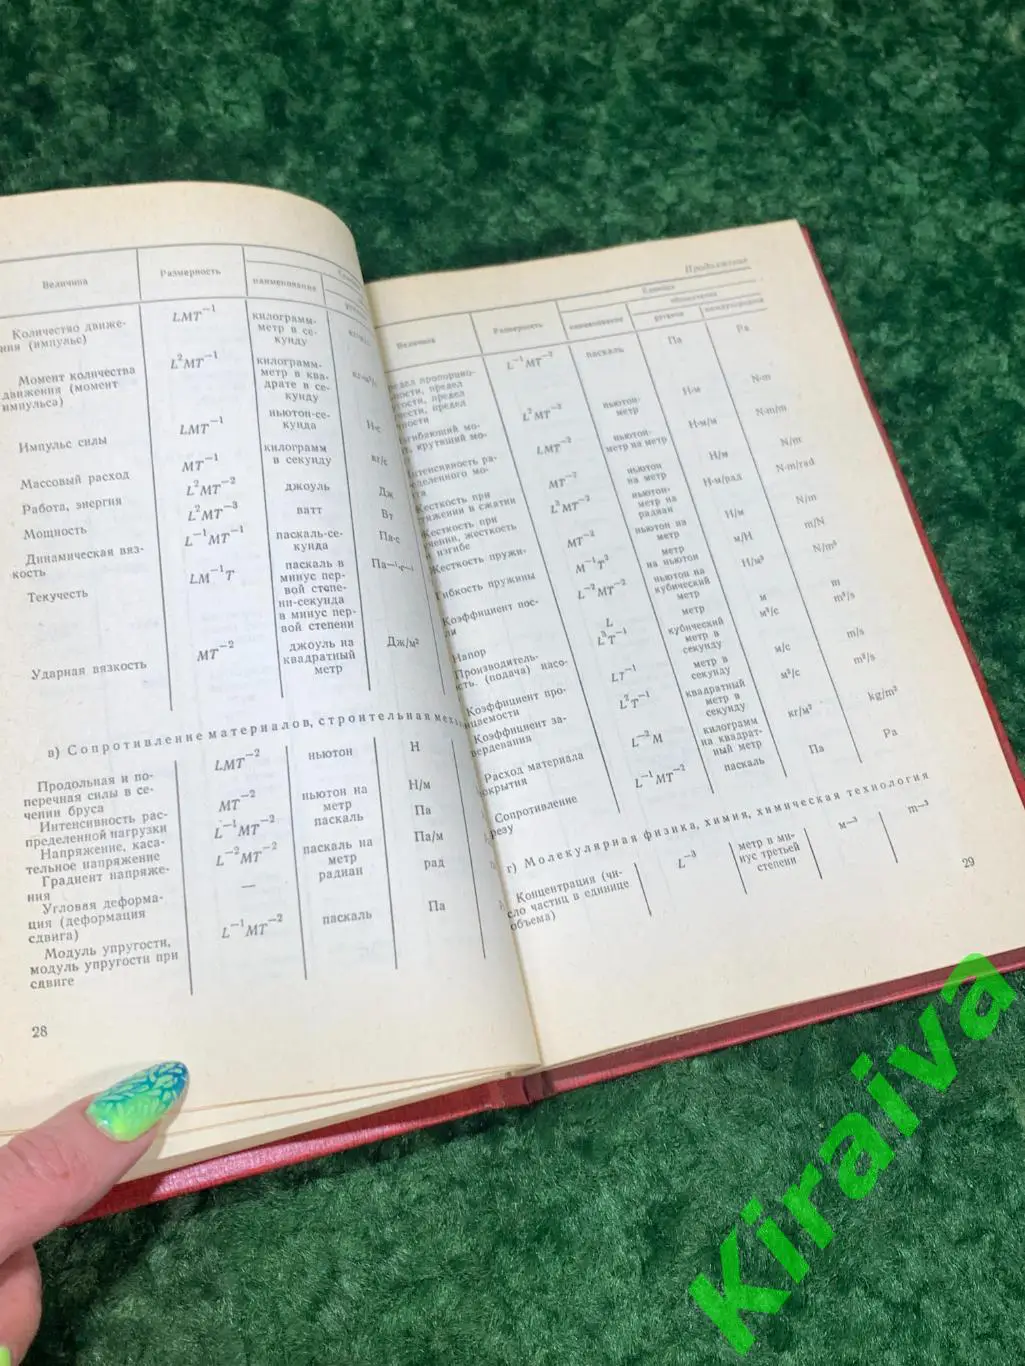 Величина
Размерность
наименования
Количество движе-
ния (импульс)
LMT⁻¹
килограмм-
метр в се-
кунду
Момент количества
движения (момент
импульса)
L²MT⁻¹
килограмм-
метр в ква-
драте в се-
кунду
Импульс силы
LMT⁻¹
ньютон-се-
кунда
Н·с
Массовый расход
MT⁻¹
килограмм
в секунду
кг/с
Работа, энергия
L²MT⁻²
джоуль
Дж
Мощность
L²MT⁻³
ватт
Вт
Динамическая вяз-
кость
L⁻¹MT⁻¹
паскаль-се-
кунда
Па·с
Текучесть
LM⁻¹T
паскаль в
минус пер-
вой степе-
ни-секунда
в минус пер-
вой степени
Па⁻¹·с⁻¹
Ударная вязкость
MT⁻²
джоуль на
квадратный
метр
Дж/м²
в) Сопротивление материалов, строительная
Продольная и по-
перечная силы в се-
чении бруса
LMT⁻²
ньютон
Н
Интенсивность рас-
пределенной нагрузки
MT⁻²
ньютон на
метр
Н/м
Напряжение, каса-
тельное напряжение
L⁻¹MT⁻²
паскаль
Па
Градиент напряже-
ния
L⁻²MT⁻²
паскаль на
метр
Па/м
Угловая деформа-
ция (деформация
сдвига)
—
радиан
рад
Модуль упругости,
модуль упругости при
сдвиге
L⁻¹MT⁻²
паскаль
Па
28
Продолжение
Величина
Размерность
Единица
наименование
обозначение
русское
международное
L⁻¹MT⁻²
паскаль
Па
Pa
L²MT⁻²
ньютон-
метр
Н·м
N·m
LMT⁻²
ньютон-
метр на метр
Н·м/м
N·m/m
Жесткость при
MT⁻²
ньютон
на метр
Н/м
N/m
Жесткость при
жесткость
изгибе
L²MT⁻²
ньютон-
метр на
радиан
Н·м/рад
N·m/rad
Жесткость пружи-
MT⁻²
ньютон на
метр
Н/м
N/m
Гибкость пружины
M⁻¹T²
метр
на ньютон
м/Н
m/N
Коэффициент пос-
L⁻²MT⁻²
ньютон на
кубический
метр
Н/м³
N/m³
Напор
L
метр
м
m
Производитель-
ность (подача) насо-
L³T⁻¹
кубический
метр в
секунду
м³/с
m³/s
Коэффициент про-
ницаемости
LT⁻¹
метр в
секунду
м/с
m/s
Коэффициент за-
вердевания
L²T⁻¹
квадратный
метр в
секунду
м²/с
m²/s
Расход материала
покрытия
L⁻²M
килограмм
на квадрат-
ный метр
кг/м²
kg/m²
Сопротивление
резу
L⁻¹MT⁻²
паскаль
Па
Pa
г) Молекулярная физика, химия, химическая технология
Концентрация (чи-
сло частиц в единице
объема)
L⁻³
метр в ми-
нус третьей
степени
м⁻³
m⁻³
29
Kiraiva